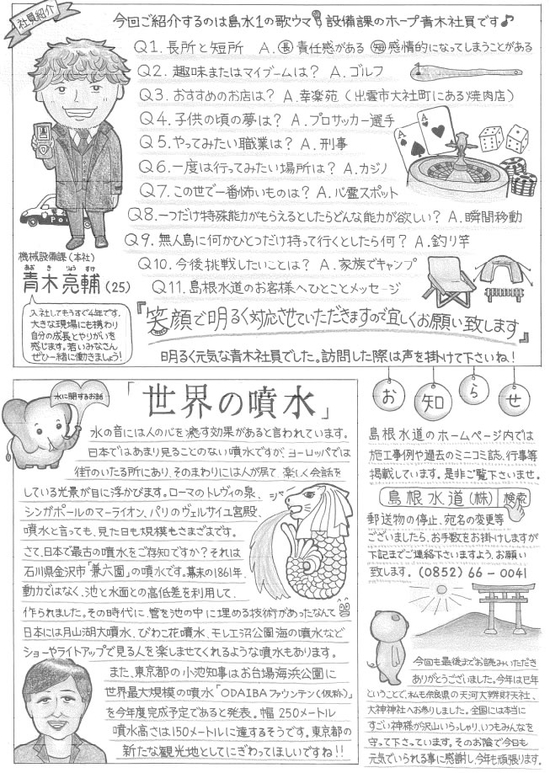 社員紹介
今回ご紹介するのは島水1の歌ウマ設備課のホープ青木社員です♪
Q1.長所と短所 A.長 責任感がある 短 感情的になってしまうことがある
Q2.趣味またはマイブームは? A.ゴルフ
Q3.おすすめのお店は? A.幸楽苑(出雲市大社町にある焼肉店)
Q4.子供の頃の夢は? A.プロサッカー選手
Q5.やってみたい職業は? A.刑事
Q6.一度は行ってみたい場所は? A.カジノ
Q7.この世で一番怖いものは? A.心霊スポット
Q8.一つだけ特殊能力がもらえるとしたらどんな能力が欲しい? A.瞬間移動
Q9.無人島に何かひとつだけ持って行くとしたら何? A.釣り竿
Q10.今後挑戦したいことは? A.家族でキャンプ
Q11.島根水道のお客様へひとことメッセージ
『笑顔で明るく対応させていただきますので宜しくお願い致します』
明るく元気な青木社員でした。訪問した際は声を掛けて下さいね!
機械設備課(本社)
青木亮輔(25)
入社してもうすぐ4年です。
大きな現場にも携わり
自分の成長とやりがいを
感じます。若いみなさん
ぜひ一緒に働きましょう!
水に関するお話
「世界の噴水」
水の音には人の心を癒す効果があると言われています。
日本ではあまり見ることのない噴水ですが、ヨーロッパでは
街のいたる所にあり、そのまわりには人が居て 楽しく会話を
している光景が目に浮かびます。ローマのトレヴィの泉、
シンガポールのマーライオン、パリのヴェルサイユ宮殿、
噴水と言っても、見た目も規模もさまざまです。
さて、日本で最古の噴水をご存知ですか?それは
石川県金沢市「兼六園」の噴水です。幕末の1861年、
動力ではなく、池と水面との高低差を利用して
作られました。その時代に、管を池の中に埋める技術があったなんて
日本には月山湖大噴水、びわこ花噴水、モエレ沼公園海の噴水など
ショーやライトアップで見る人を楽しませてくれるような噴水もあります。
また、東京都の小池知事はお台場海浜公園に
世界最大規模の噴水「ODAIBAファウンテン(仮称)」
を今年度完成予定であると発表。幅 250メートル
噴水高さは150メートルに達するそうです。東京都の
新たな観光地としてにぎわってほしいですね!!
お知らせ
島根水道のホームページ内では
施工事例や過去のミニコミ誌、行事等
掲載しています。是非ご覧下さいませ。
島根水道(株) 検索
郵送物の停止、宛名の変更等
ございましたら、お手数をお掛けしますが
下記までご連絡下さいますよう、お願い
致します。(0852)66-0041
今回も最後までお読みいただき
ありがとうございました。今年は巳年
ということで、私も奈良県の天河大辨財天社、
大神神社へお参りしました。全国には本当に
すごい神様が沢山いらっしゃり、いつもみんなを
守って下さっています。そのお陰で今日も
元気でいられる事に感謝し、今年も頑張ります。